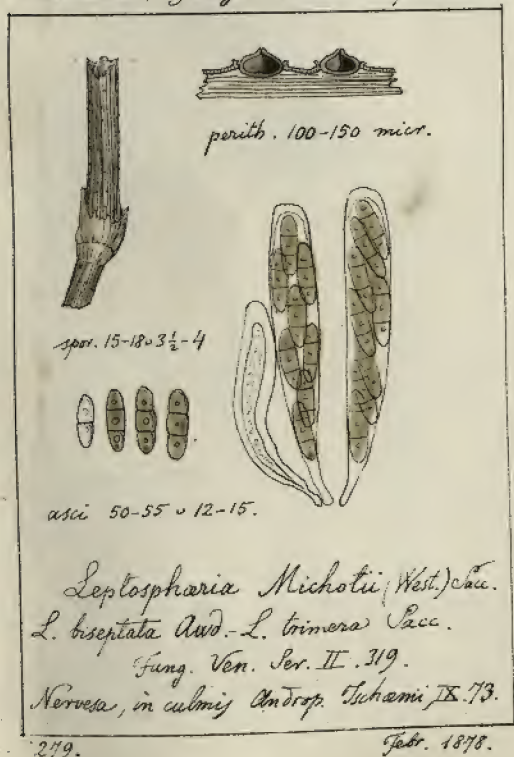 perith. 100-150 micr.
spor. 15-18 υ 3½-4
asci 50-55 υ 12-15.
Leptosphæria Michotii (West.) Sacc.
L. biseptata Awd. - L. trimera Sacc.
Fung. Ven. Ser. II. 319.
Nervesa, in culmis Androp. Ischæmi, IX. 73.
279.
Febr. 1878.